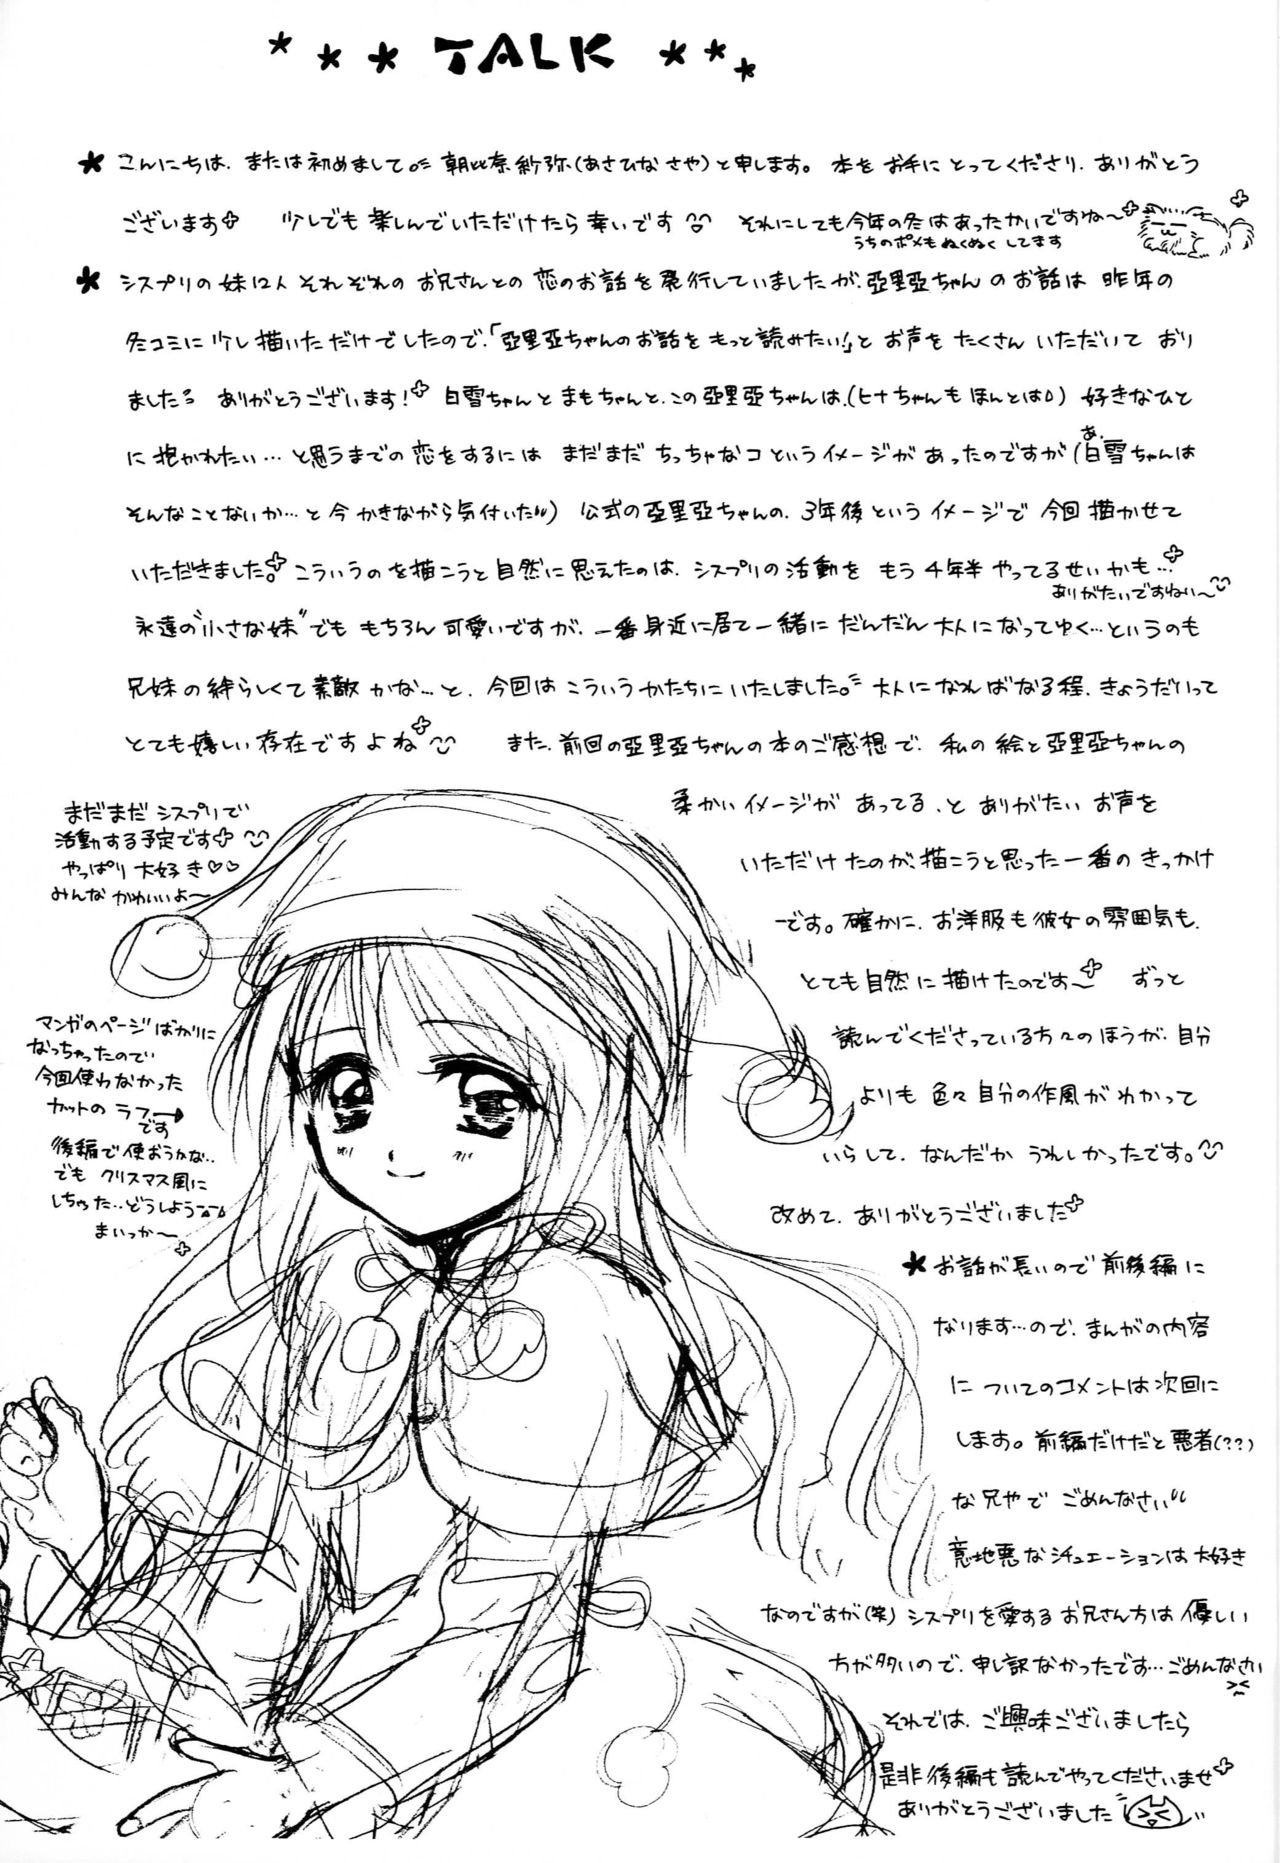 *** TALK ***
★ こんにちは、または初めまして。朝比奈紗弥(あさひなさや)と申します。本をお手にとってくださり、ありがとう
ございます 少しでも楽しんでいただけたら幸いです それにしても今年の冬はあったかいですね〜
うちのポメもぬくぬくしてます
★ シスプリの妹12人それぞれのお兄さんとの恋のお話を発行していましたが、亞里亞ちゃんのお話は昨年の
冬コミに少し描いただけでしたので、「亞里亞ちゃんのお話をもっと読みたい!」とお声をたくさんいただいており
ました ありがとうございます! 白雪ちゃんとまもちゃんと、この亞里亞ちゃんは、(ヒナちゃんもほんとは)好きなひと
に抱かれたい…と思うまでの恋をするにはまだまだちっちゃなコというイメージがあったのですが(あ、白雪ちゃんは
そんなことないか…と今かきながら気付いた")公式の亞里亞ちゃんの、3年後というイメージで今回描かせて
いただきました。こういうのを描こうと自然に思えたのは、シスプリの活動をもう4年半やってるせいかも…
ありがたいですねい〜
永遠の"小さな妹"でももちろん可愛いですが、一番身近に居て一緒にだんだん大人になってゆく…というのも
兄妹の絆らしくて素敵かな…と、今回はこういうかたちにいたしました。大人になればなる程、きょうだいって
とても嬉しい存在ですよね また、前回の亞里亞ちゃんの本のご感想で、私の絵と亞里亞ちゃんの
柔かいイメージがあってる、とありがたいお声を
いただけたのが、描こうと思った一番のきっかけ
です。確かに、お洋服も彼女の雰囲気も、
とても自然に描けたのです〜 ずっと
読んでくださっている方々のほうが、自分
よりも色々自分の作風がわかって
いらして、なんだかうれしかったです。
改めて、ありがとうございました
★ お話が長いので前後編に
なります…ので、まんがの内容
についてのコメントは次回に
します。前編だけだと悪者(??)
な兄やでごめんなさい"
意地悪なシチュエーションは大好き
なのですが(笑)シスプリを愛するお兄さん方は優しい
方が多いので、申し訳なかったです…ごめんなさい
それでは、ご興味ございましたら
是非後編も読んでやってくださいませ
ありがとうございました
まだまだシスプリで
活動する予定です
やっぱり大好き♡♡
みんなかわいいよ〜
マンガのページばかりに
なっちゃったので
今回使わなかった
カットのラフ→
です
後編で使おうかな..
でもクリスマス風に
しちゃった…どうしよう
まいっか〜